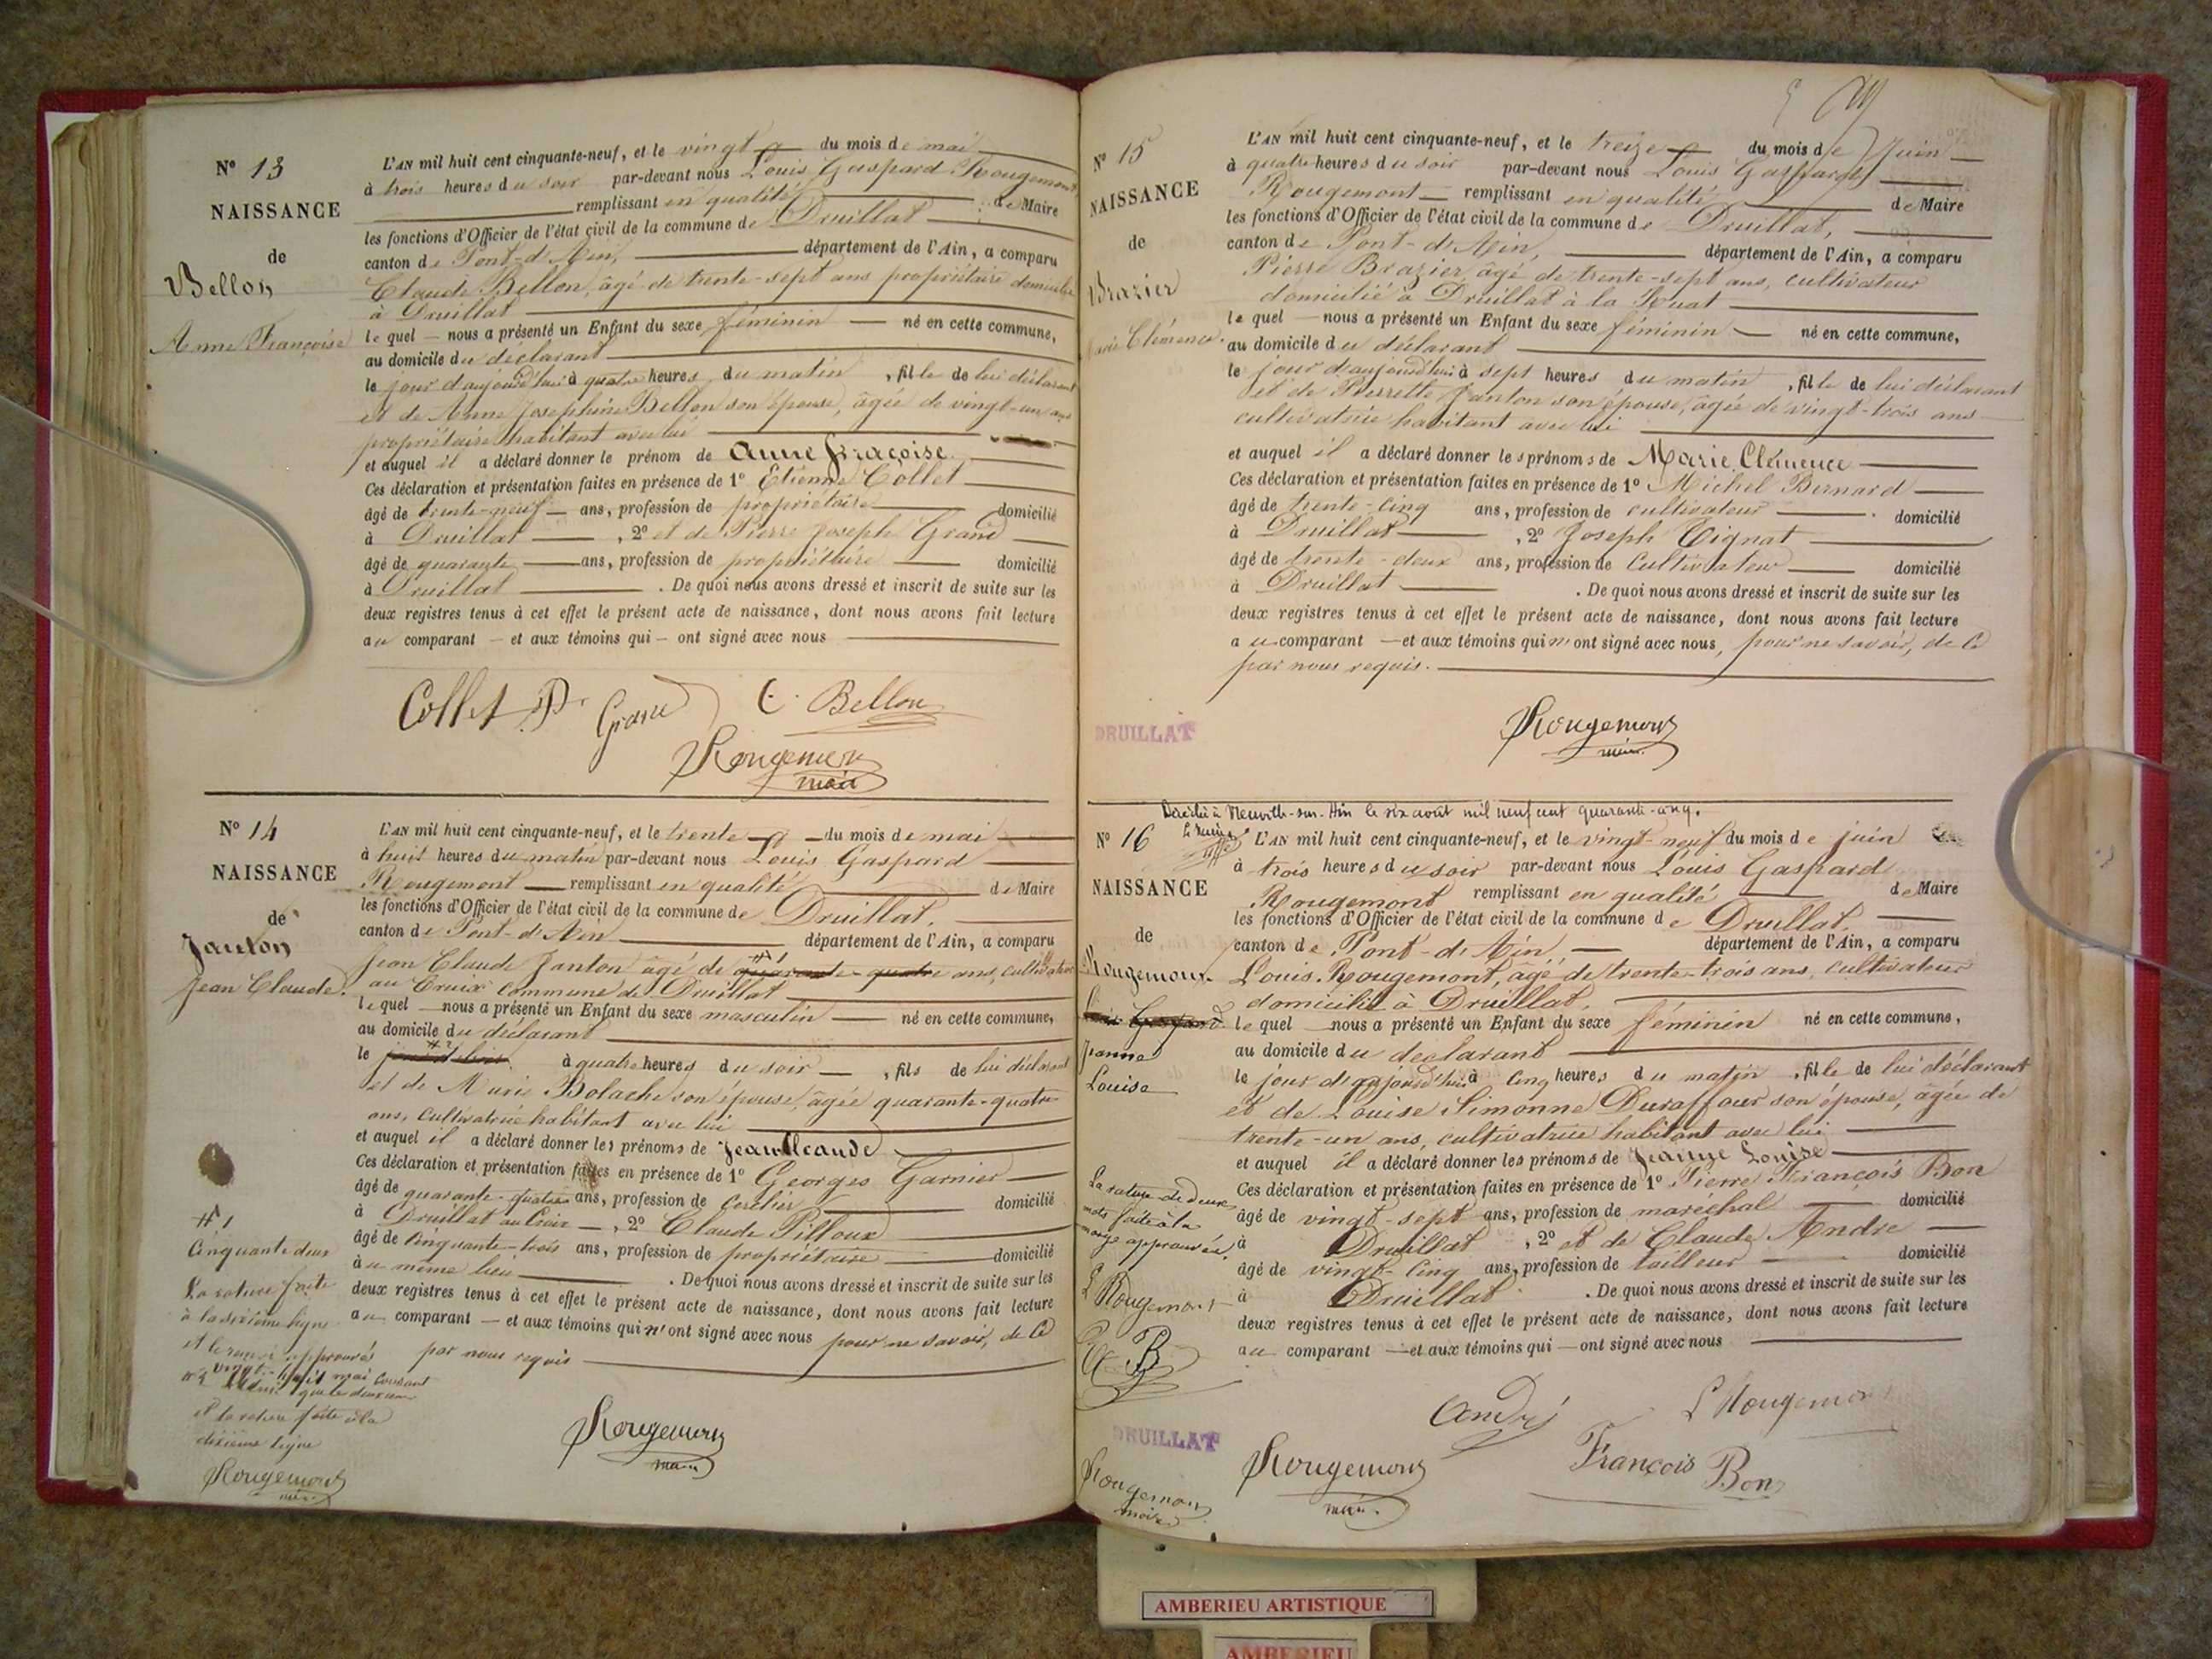 N° 13
NAISSANCE
de
Bellon
Anne Françoise
L'AN mil huit cent cinquante-neuf, et le vingt du mois de mai
à trois heures du soir par-devant nous Louis Gaspard Rougemont
remplissant en qualité de Maire
les fonctions d'Officier de l'état civil de la commune de Druillat
canton de Pont-d'Ain, département de l'Ain, a comparu
Claude Bellon, âgé de trente-sept ans propriétaire domicilié
à Druillat
le quel nous a présenté un Enfant du sexe féminin né en cette commune,
au domicile du déclarant
le jour d'aujourd'hui à quatre heures du matin, fille de lui déclarant
et de Anne Josephine Bellon son épouse, âgée de vingt-un ans
propriétaire habitant avec lui
et auquel il a déclaré donner le prénom de Anne Fraçoise
Ces déclaration et présentation faites en présence de 1° Etienne Collet
âgé de trente-neuf ans, profession de propriétaire domicilié
à Druillat, 2° et de Pierre Joseph Grand
âgé de quarante ans, profession de propriétaire domicilié
à Druillat. De quoi nous avons dressé et inscrit de suite sur les
deux registres tenus à cet effet le présent acte de naissance, dont nous avons fait lecture
au comparant et aux témoins qui ont signé avec nous
Collet P. Grand C. Bellon
Rougemont
maire
N° 14
NAISSANCE
de
Janton
Jean Claude.
L'AN mil huit cent cinquante-neuf, et le trente du mois de mai
à huit heures du matin par-devant nous Louis Gaspard
Rougemont remplissant en qualité de Maire
les fonctions d'Officier de l'état civil de la commune de Druillat.
canton de Pont-d'Ain département de l'Ain, a comparu
#1
Jean Claude Janton âgé de quarante-quatre ans, cultivateur
au Creux commune de Druillat
le quel nous a présenté un Enfant du sexe masculin né en cette commune,
au domicile du déclarant
#2
le à quatre heures du soir, fils de lui déclarant
et de Marie Bolache son épouse, âgée quarante-quatre
ans, cultivatrice habitant avec lui
et auquel il a déclaré donner les prénoms de Jean Claude
Ces déclaration et présentation faites en présence de 1° Georges Garnier
âgé de quarante-quatre ans, profession de domicilié
à Druillat au, 2° Claude Pilloux
âgé de cinquante-trois ans, profession de propriétaire domicilié
au même lieu. De quoi nous avons dressé et inscrit de suite sur les
deux registres tenus à cet effet le présent acte de naissance, dont nous avons fait lecture
au comparant et aux témoins qui n'ont signé avec nous pour ne savoir, de ce
par nous requis
#1
Cinquante deux
La rature faite
à la sixième ligne
et le renvoi approuvés
#2 vingt-huit mai courant
que le deuxième
et la rature faite à la
dixième ligne
Rougemont
maire
Rougemont
maire
N° 15
NAISSANCE
de
Brazier
Marie Clémence.
L'AN mil huit cent cinquante-neuf, et le treize du mois de Juin
à quatre heures du soir par-devant nous Louis Gaspard
Rougemont remplissant en qualité de Maire
les fonctions d'Officier de l'état civil de la commune de Druillat,
canton de Pont-d'Ain, département de l'Ain, a comparu
Pierre Brazier, âgé de trente-sept ans, cultivateur
domicilié à Druillat à la Ruat
le quel nous a présenté un Enfant du sexe féminin né en cette commune,
au domicile du déclarant
le jour d'aujourd'hui à sept heures du matin, fille de lui déclarant
et de Pierrette Janton son épouse, âgée de vingt-trois ans
cultivatrice habitant avec lui
et auquel il a déclaré donner les prénoms de Marie Clémence
Ces déclaration et présentation faites en présence de 1° Michel Bernard
âgé de trente-cinq ans, profession de cultivateur domicilié
à Druillat, 2° Joseph Tignat
âgé de trente-deux ans, profession de Cultivateur domicilié
à Druillat. De quoi nous avons dressé et inscrit de suite sur les
deux registres tenus à cet effet le présent acte de naissance, dont nous avons fait lecture
au comparant et aux témoins qui n'ont signé avec nous, pour ne savoir, de ce
par nous requis.
DRUILLAT
Rougemont
maire.
Décédée à Neuville-sur-Ain le six août mil neuf cent quarante-cinq.
N° 16
NAISSANCE
de
Rougemont
Jeanne
Louise
L'AN mil huit cent cinquante-neuf, et le vingt-neuf du mois de juin
à trois heures du soir par-devant nous Louis Gaspard
Rougemont remplissant en qualité de Maire
les fonctions d'Officier de l'état civil de la commune de Druillat.
canton de Pont-d'Ain, département de l'Ain, a comparu
Louis Rougemont, âgé de trente-trois ans, cultivateur
domicilié à Druillat,
le quel nous a présenté un Enfant du sexe féminin né en cette commune,
au domicile du declarant
le jour d'aujourd'hui à cinq heures du matin, fille de lui déclarant
et de Louise Simonne Duraffour son épouse, âgée de
trente-un ans, cultivatrice habitant avec lui
et auquel il a déclaré donner les prénoms de Jeanne Louise
Ces déclaration et présentation faites en présence de 1° Pierre François Bon
âgé de vingt-sept ans, profession de maréchal domicilié
à Druillat, 2° et de Claude Andre
âgé de vingt-cinq ans, profession de tailleur domicilié
à Druillat. De quoi nous avons dressé et inscrit de suite sur les
deux registres tenus à cet effet le présent acte de naissance, dont nous avons fait lecture
au comparant et aux témoins qui ont signé avec nous
La rature de deux
mots faite à la
marge approuvée.
L Rougemont
B
DRUILLAT
Rougemont
maire
André L Rougemont
Rougemont
maire.
François Bon
AMBERIEU ARTISTIQUE
AMBERIEU